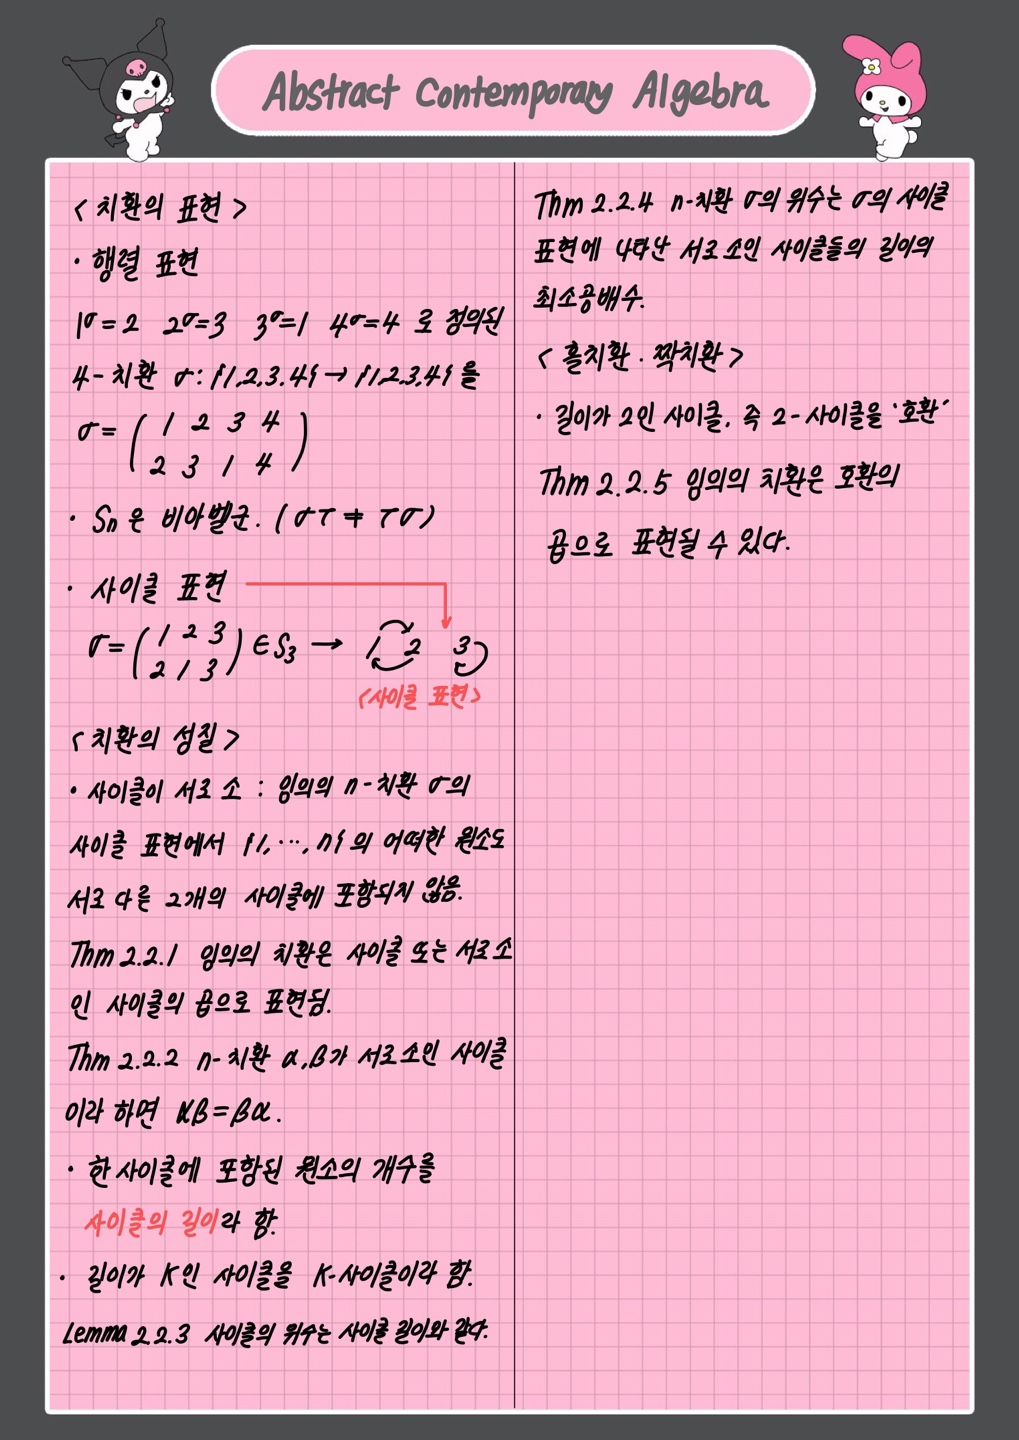 Abstract Contemporary Algebra
< 치환의 표현 >
· 행렬 표현
1σ=2 2σ=3 3σ=1 4σ=4 로 정의된
4-치환 σ: {1,2,3,4} → {1,2,3,4} 를
σ= ( 1 2 3 4
2 3 1 4 )
· Sn은 비아벨군. (στ ≠ τσ)
· 사이클 표현
σ= ( 1 2 3
2 1 3 ) ∈ S₃ → 1 2 3
<사이클 표현>
< 치환의 성질 >
· 사이클이 서로 소 : 임의의 n-치환 σ의
사이클 표현에서 {1, ···, n}의 어떠한 원소도
서로 다른 2개의 사이클에 포함되지 않음.
Thm 2.2.1 임의의 치환은 사이클 또는 서로 소
인 사이클의 곱으로 표현됨.
Thm 2.2.2 n-치환 α,β가 서로 소인 사이클
이라 하면 αβ=βα.
· 한 사이클에 포함된 원소의 개수를
사이클의 길이라 함.
· 길이가 K인 사이클을 K-사이클이라 함.
Lemma 2.2.3 사이클의 위수는 사이클 길이와 같다.
Thm 2.2.4 n-치환 σ의 위수는 σ의 사이클
표현에 나타난 서로 소인 사이클들의 길이의
최소공배수.
< 홀치환 · 짝치환 >
· 길이가 2인 사이클, 즉 2-사이클을 '호환'
Thm 2.2.5 임의의 치환은 호환의
곱으로 표현될 수 있다.